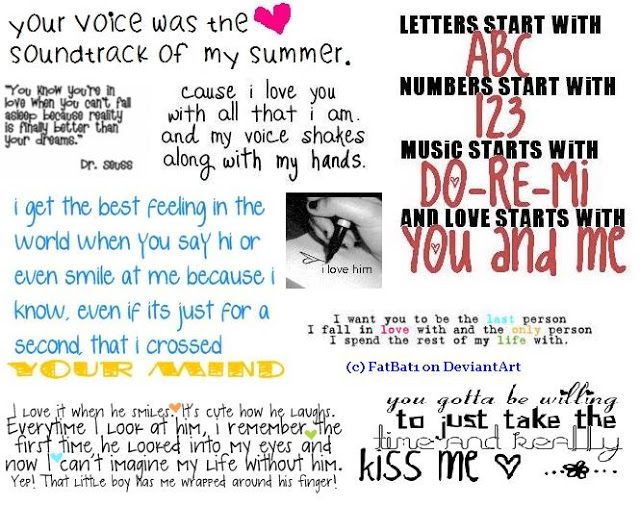 your voice was the
soundtrack of my summer.
"You know you're in
love when you can't fall
asleep because reality
is finally better than
your dreams."
Dr. Seuss
cause i love you
with all that i am.
and my voice shakes
along with my hands.
LETTERS START WiTH
ABC
NUMBERS START WiTH
123
MUSiC STARTS WiTH
DO-RE-Mi
AND LOVE STARTS WiTH
YOU and me
i get the best feeling in the
world when you say hi or
even smile at me because i
know, even if its just for a
second, that i crossed
YOUR MIND
i love him
I want you to be the last person
I fall in love with and the only person
I spend the rest of my life with.
(c) FatBat1 on DeviantArt
I love it when he smiles. It's cute how he laughs.
Everytime I look at him, i remember the
first time he looked into my eyes and
now I can't imagine my life without him.
Yep! That little boy has me wrapped around his finger!
you gotta be willing
to just take the
time and really
kiss me